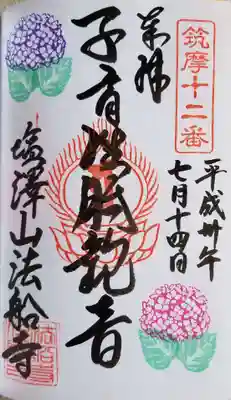 筑摩十二番
平成卅年
七月十四日
奉拝
子育地蔵観音
塩澤山法船寺